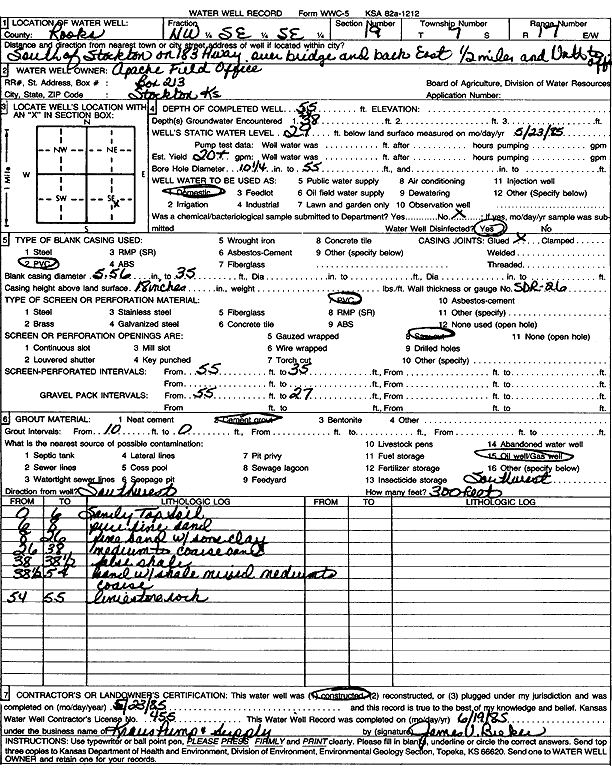 WATER WELL RECORD Form WWC-5 KSA 82a-1212
1 LOCATION OF WATER WELL: Fraction Section Number Township Number Range Number
County: Rooks NW ¼ SE ¼ SE ¼ 19 T 7 S R 17 E/W
Distance and direction from nearest town or city street address of well if located within city?
South of Stockton on 183 Hiway, over bridge and back East 1/2 miles and
2 WATER WELL OWNER: Apache Field Office
RR#, St. Address, Box # : Box 213 Board of Agriculture, Division of Water Resources
City, State, ZIP Code : Stockton Ks Application Number:
3 LOCATE WELL'S LOCATION WITH AN "X" IN SECTION BOX:
N
NW NE
W E
SW SE X
S
1 Mile
4 DEPTH OF COMPLETED WELL 55 ft. ELEVATION:
Depth(s) Groundwater Encountered 1. 38 ft. 2. ft. 3. ft.
WELL'S STATIC WATER LEVEL 29 ft. below land surface measured on mo/day/yr 5/23/85
Pump test data: Well water was ft. after hours pumping gpm
Est. Yield 20+ gpm: Well water was ft. after hours pumping gpm
Bore Hole Diameter 10 1/4 in. to 55 ft., and in. to ft.
WELL WATER TO BE USED AS: 5 Public water supply 8 Air conditioning 11 Injection well
1 Domestic 3 Feedlot 6 Oil field water supply 9 Dewatering 12 Other (Specify below)
2 Irrigation 4 Industrial 7 Lawn and garden only 10 Observation well
Was a chemical/bacteriological sample submitted to Department? Yes No X If yes, mo/day/yr sample was sub-
mitted Water Well Disinfected? Yes No
5 TYPE OF BLANK CASING USED: 5 Wrought iron 8 Concrete tile CASING JOINTS: Glued X Clamped
1 Steel 3 RMP (SR) 6 Asbestos-Cement 9 Other (specify below) Welded
2 PVC 4 ABS 7 Fiberglass Threaded
Blank casing diameter 5.56 in. to 35 ft., Dia in. to ft., Dia in. to ft.
Casing height above land surface 18 inches in., weight lbs./ft. Wall thickness or gauge No. SDR-26
TYPE OF SCREEN OR PERFORATION MATERIAL: 7 PVC 10 Asbestos-cement
1 Steel 3 Stainless steel 5 Fiberglass 8 RMP (SR) 11 Other (specify)
2 Brass 4 Galvanized steel 6 Concrete tile 9 ABS 12 None used (open hole)
SCREEN OR PERFORATION OPENINGS ARE: 5 Gauzed wrapped 8 Saw cut 11 None (open hole)
1 Continuous slot 3 Mill slot 6 Wire wrapped 9 Drilled holes
2 Louvered shutter 4 Key punched 7 Torch cut 10 Other (specify)
SCREEN-PERFORATED INTERVALS: From 55 ft. to 35 ft., From ft. to ft.
From ft. to ft., From ft. to ft.
GRAVEL PACK INTERVALS: From 55 ft. to 27 ft., From ft. to ft.
From ft. to ft., From ft. to ft.
6 GROUT MATERIAL: 1 Neat cement 2 Cement grout 3 Bentonite 4 Other
Grout Intervals: From 10 ft. to 0 ft., From ft. to ft., From ft. to ft.
What is the nearest source of possible contamination: 10 Livestock pens 14 Abandoned water well
1 Septic tank 4 Lateral lines 7 Pit privy 11 Fuel storage 15 Oil well/Gas well
2 Sewer lines 5 Cess pool 8 Sewage lagoon 12 Fertilizer storage 16 Other (specify below)
3 Watertight sewer lines 6 Seepage pit 9 Feedyard 13 Insecticide storage Southwest
Direction from well? Southwest How many feet? 300 feet
FROM TO LITHOLOGIC LOG FROM TO LITHOLOGIC LOG
0 6 Sandy Topsoil
6 8 pure fine sand
8 26 fine sand w/ some clay
26 38 medium to coarse sand
38 38½ false shale
38½ 54 sand w/ shale mixed medium to
coarse
54 55 limestone rock
7 CONTRACTOR'S OR LANDOWNER'S CERTIFICATION: This water well was (1) constructed, (2) reconstructed, or (3) plugged under my jurisdiction and was
completed on (mo/day/year) 5/23/85 and this record is true to the best of my knowledge and belief. Kansas
Water Well Contractor's License No. 455 This Water Well Record was completed on (mo/day/yr) 6/19/85
under the business name of Kraus Pump & Supply by (signature) James V. Bieker
INSTRUCTIONS: Use typewriter or ball point pen, PLEASE PRESS FIRMLY and PRINT clearly. Please fill in blanks, underline or circle the correct answers. Send top
three copies to Kansas Department of Health and Environment, Division of Environment, Environmental Geology Section, Topeka, KS 66620. Send one to WATER WELL
OWNER and retain one for your records.